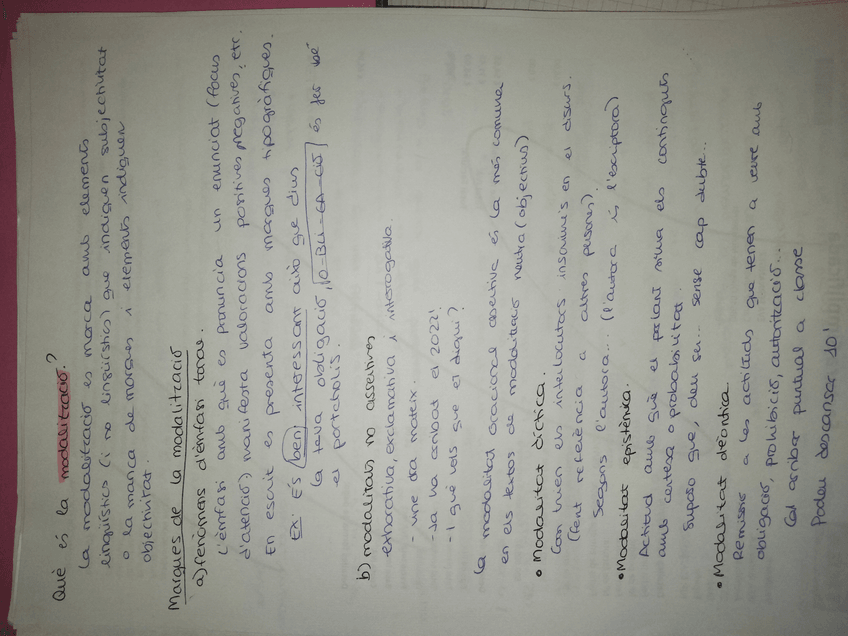 Què és la modalització?
La modalització es marca amb elements
lingüístics (i no lingüístics) que indiquen subjectivitat
o la manca de marques i elements indiquen
objectivitat.
Marques de la modalització
a) fenòmens d'èmfasi tonal.
L'èmfasi amb què es pronuncia un enunciat (focus
d'atenció) manifesta valoracions positives, negatives, etc.
En escrit es presenta amb marques tipogràfiques.
Ex: És ben interessant això que dius
La teva obligació, O-BLI-GA-CIÓ, és fer bé
el
b) modalitats no assertives
exhorativa, exclamativa i interogativa.
- vine ara mateix.
- Ja ha arribat el 2022!
- I què vols que et digui?
La modalitat oracional assertiva és la més comuna
en els textos de modalització neutra (objectius)
• Modalitat díctica.
Com els interlocutors inscrivins en el discurs.
(fent referència a altres persones).
Segons l'autora... (l'autora és l'escriptora)
• Modalitat epistèmica.
Actitud amb què el parlant situa els continguts
amb certesa o probabilitat.
Suposo que, deu ser... sense cap dubte...
• Modalitat deòntica.
Remissió a les actituds que tenen a veure amb
obligació, prohibició, autorització...
Cal arribar puntual a classe
Podeu descansar 10'